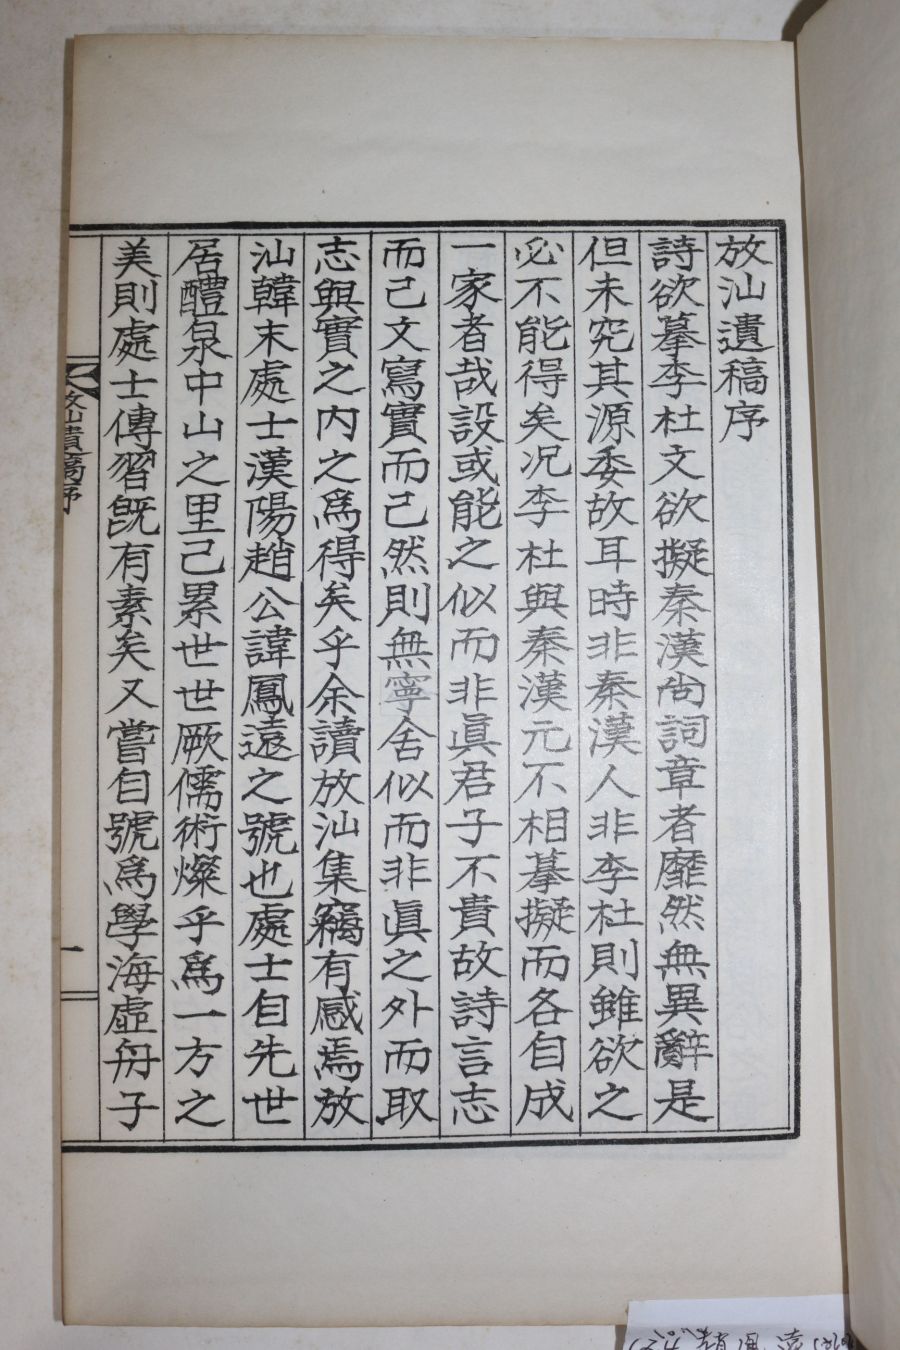 放汕遺稿序
詩欲摹李杜文欲擬秦漢尙詞章者靡然無異辭是
但未究其源委故耳時非秦漢人非李杜則雖欲之
必不能得矣况李杜與秦漢元不相摹擬而各自成
一家者哉設或能之似而非眞君子不貴故詩言志
而己文寫實而己然則無寧舍似而非眞之外而取
志與實之内之爲得矣乎余讀放汕集竊有感焉放
汕韓末處士漢陽趙公諱鳳遠之號也處士自先世
居醴泉中山之里己累世世厥儒術燦乎爲一方之
美則處士傳習旣有素矣又嘗自號爲學海虛舟子
放汕遺稿序
一